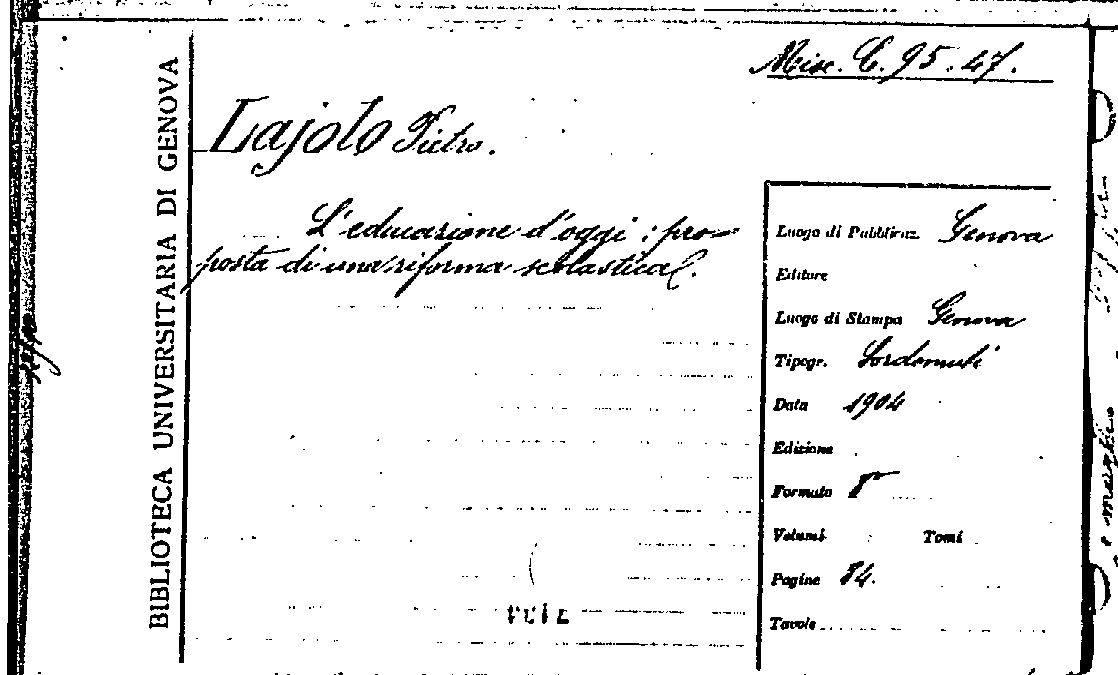 BIBLIOTECA UNIVERSITARIA DI GENOVA
Misc. C. 95. 47.
Lajolo Pietro.
L'educazione d'oggi : pro-
posta di una riforma scolastica.
Luogo di Pubblicaz. Genova
Editore
Luogo di Stampa Genova
Tipogr. Sordomuti
Data 1904
Edizione
Formato 8°
Volumi Tomi
Pagine 84.
Tavole